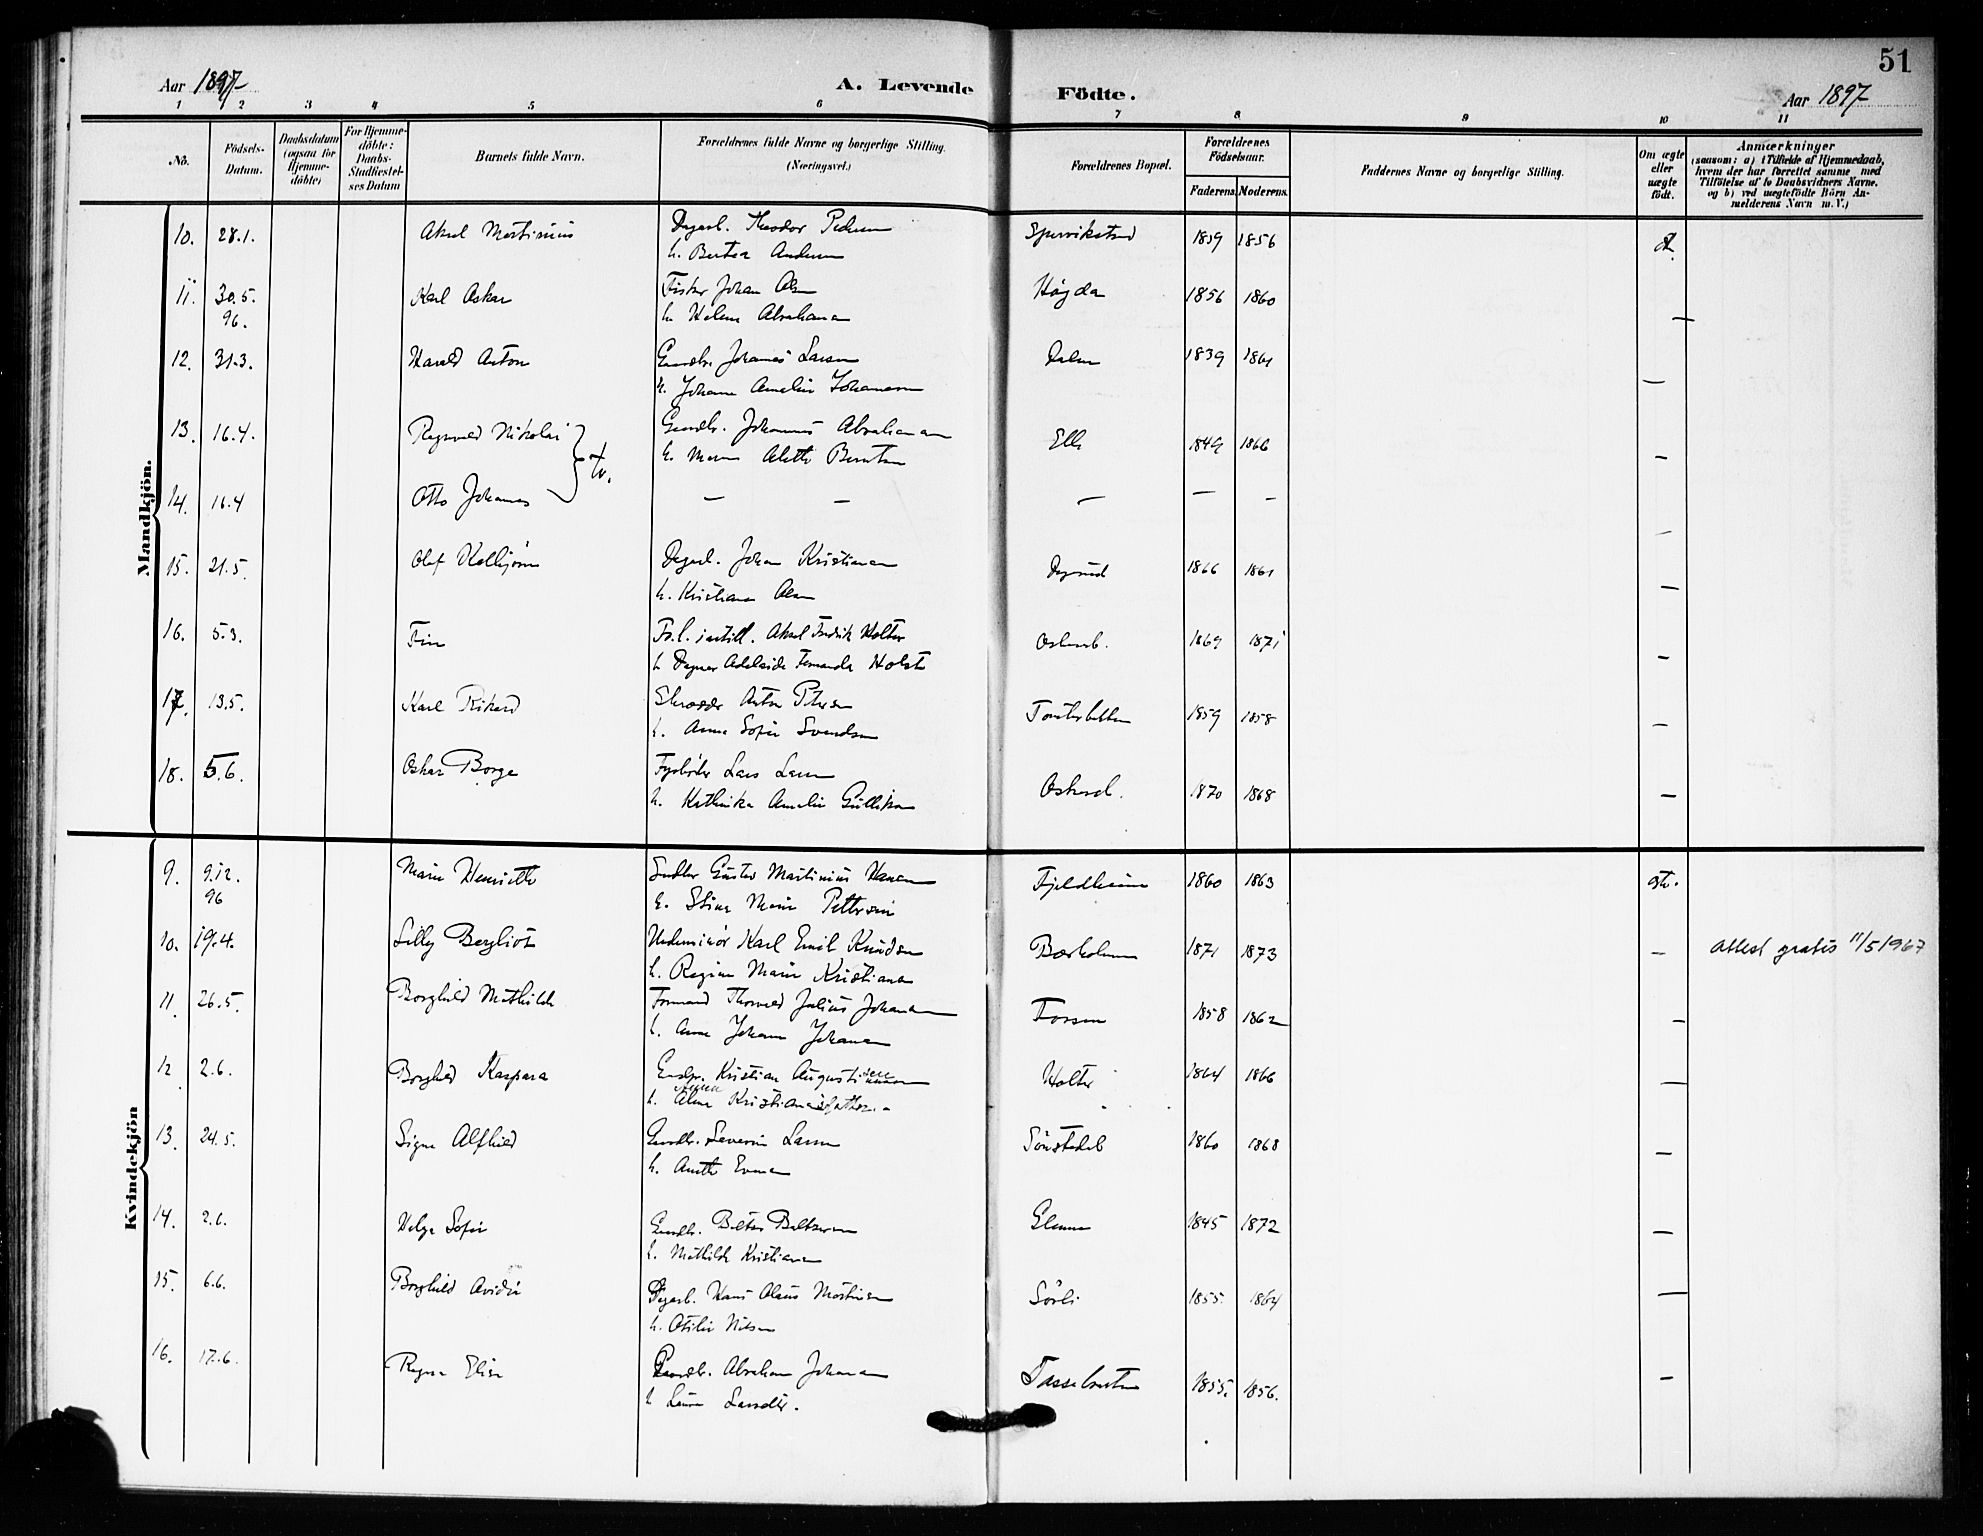 51
Aar 1897
A. Levende Födte.
Aar 1897
1 2 3 4 5 6 7 8 9 10 11
No.
Födsels-Datum.
Daabsdatum (ogsaa for Hjemme-döbte)
For Hjemme-döbte: Daabs-Stadfæstel-ses Datum
Barnets fulde Navn.
Forældrenes fulde Navne og borgerlige Stilling. (Næringsvei.)
Forældrenes Bopæl.
Forældrenes Födselsaar.
Faderens. Moderens.
Faddernes Navne og borgerlige Stilling.
Om ægte eller uægte födt.
Anmærkninger
(saasom: a) i Tilfælde af Hjemmedaab,
hvem der har forrettet samme med
Tilföielse af to Daabsvidners Navne.
og b) ved uægtefödte Börn An-
melderens Navn m. V.)
Mandkjön.
10. 28.1. Aksel Martinius Dagarb. Theodor Pedersen 1859 1856
h. Bertea Andersen
11. 30.5. Karl Oskar Fisker Johan Olsen Högda 1856 1860 —
96. h. Helene Abrahamsen
12. 31.3. Harald Anton Gaardbr. Johannes Larsen Dalen 1839 1861 —
h. Johanne Amalie Johannesen
13. 16.4. Ragnvald Nikolai } tv. Gaardbr. Johannes Abrahamsen Elle 1849 1866 —
h. Maren Alette Berntsen
14. 16.4 Otto Johannes — — — — — —
15. 21.5. Olaf Kolbjörn Dagarb. Johan Kristiansen 1866 1861 —
h. Kristiane Olsen
16. 5.3. Finn Aksel Fredrik Holter 1869 1871 —
h. Dagmar Adelaide Fernanda Holst
17. 13.5. Karl Rikard Skrædder Anton Petersen 1859 1858 —
h. Anna Sofie Svendsen
18. 5.6. Oskar Borge Fyrböder Lars Larsen 1870 1868 —
h. Kathinka Amalie Gulliksen
Kvindekjön
9. 9.12. Marie Henriette Gustav Martinius Hansen Fjeldheim 1860 1863 gte.
96 h. Stina Marie Pettersen
10. 19.4. Lilly Bergliot Karl Emil Knudsen Barholmen 1871 1873 — Attest gratis 11/5 1967
h. Regine Marie Kristiansen
11. 26.5. Borghild Mathilde Formand Thorvald Julius Johansen Fossen 1858 1862 —
h. Anne Johanne Johansen
12. 2.6. Borghild Kaspara Gaardbr. Kristian Augustinusen Holter 1864 1866 —
h. Alma Kristiansdatter
13. 24.5. Signe Alfhild Gaardbr. Severin Larsen 1860 1868 —
h. Anette Evensen
14. 2.6. Helga Sofie Gaardbr. Baltzersen Glenne 1845 1872 —
h. Mathilde Kristiansen
15. 6.6. Borghild Ovidie Dagarb. Hans Olaus Mortinsen Sörli 1855. 1864 —
h. Otilie Nilsen
16. 17.6. Ragna Elise Gaardbr. Abraham Johansen 1855. 1856. —
h. Laura